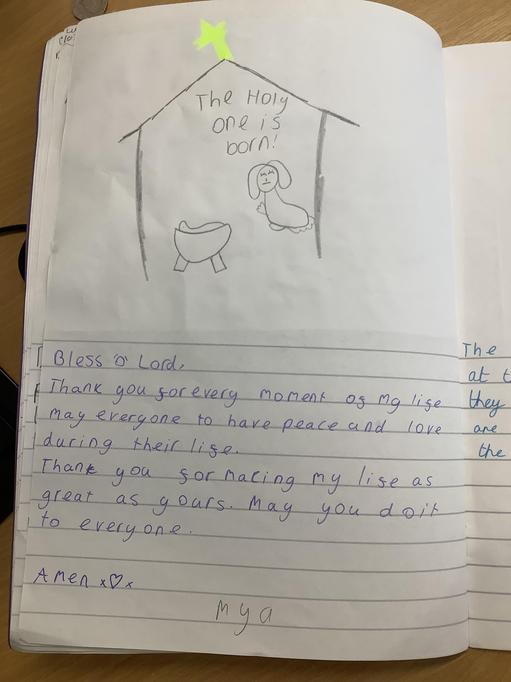 The Holy
one is
born!
Bless 'O' Lord,
Thank you for every moment of my life
may everyone to have peace and love
during their life.
Thank you for making my life as
great as yours. May you do it
to everyone.
Amen x♡x
mya
The
at t
they
are
the